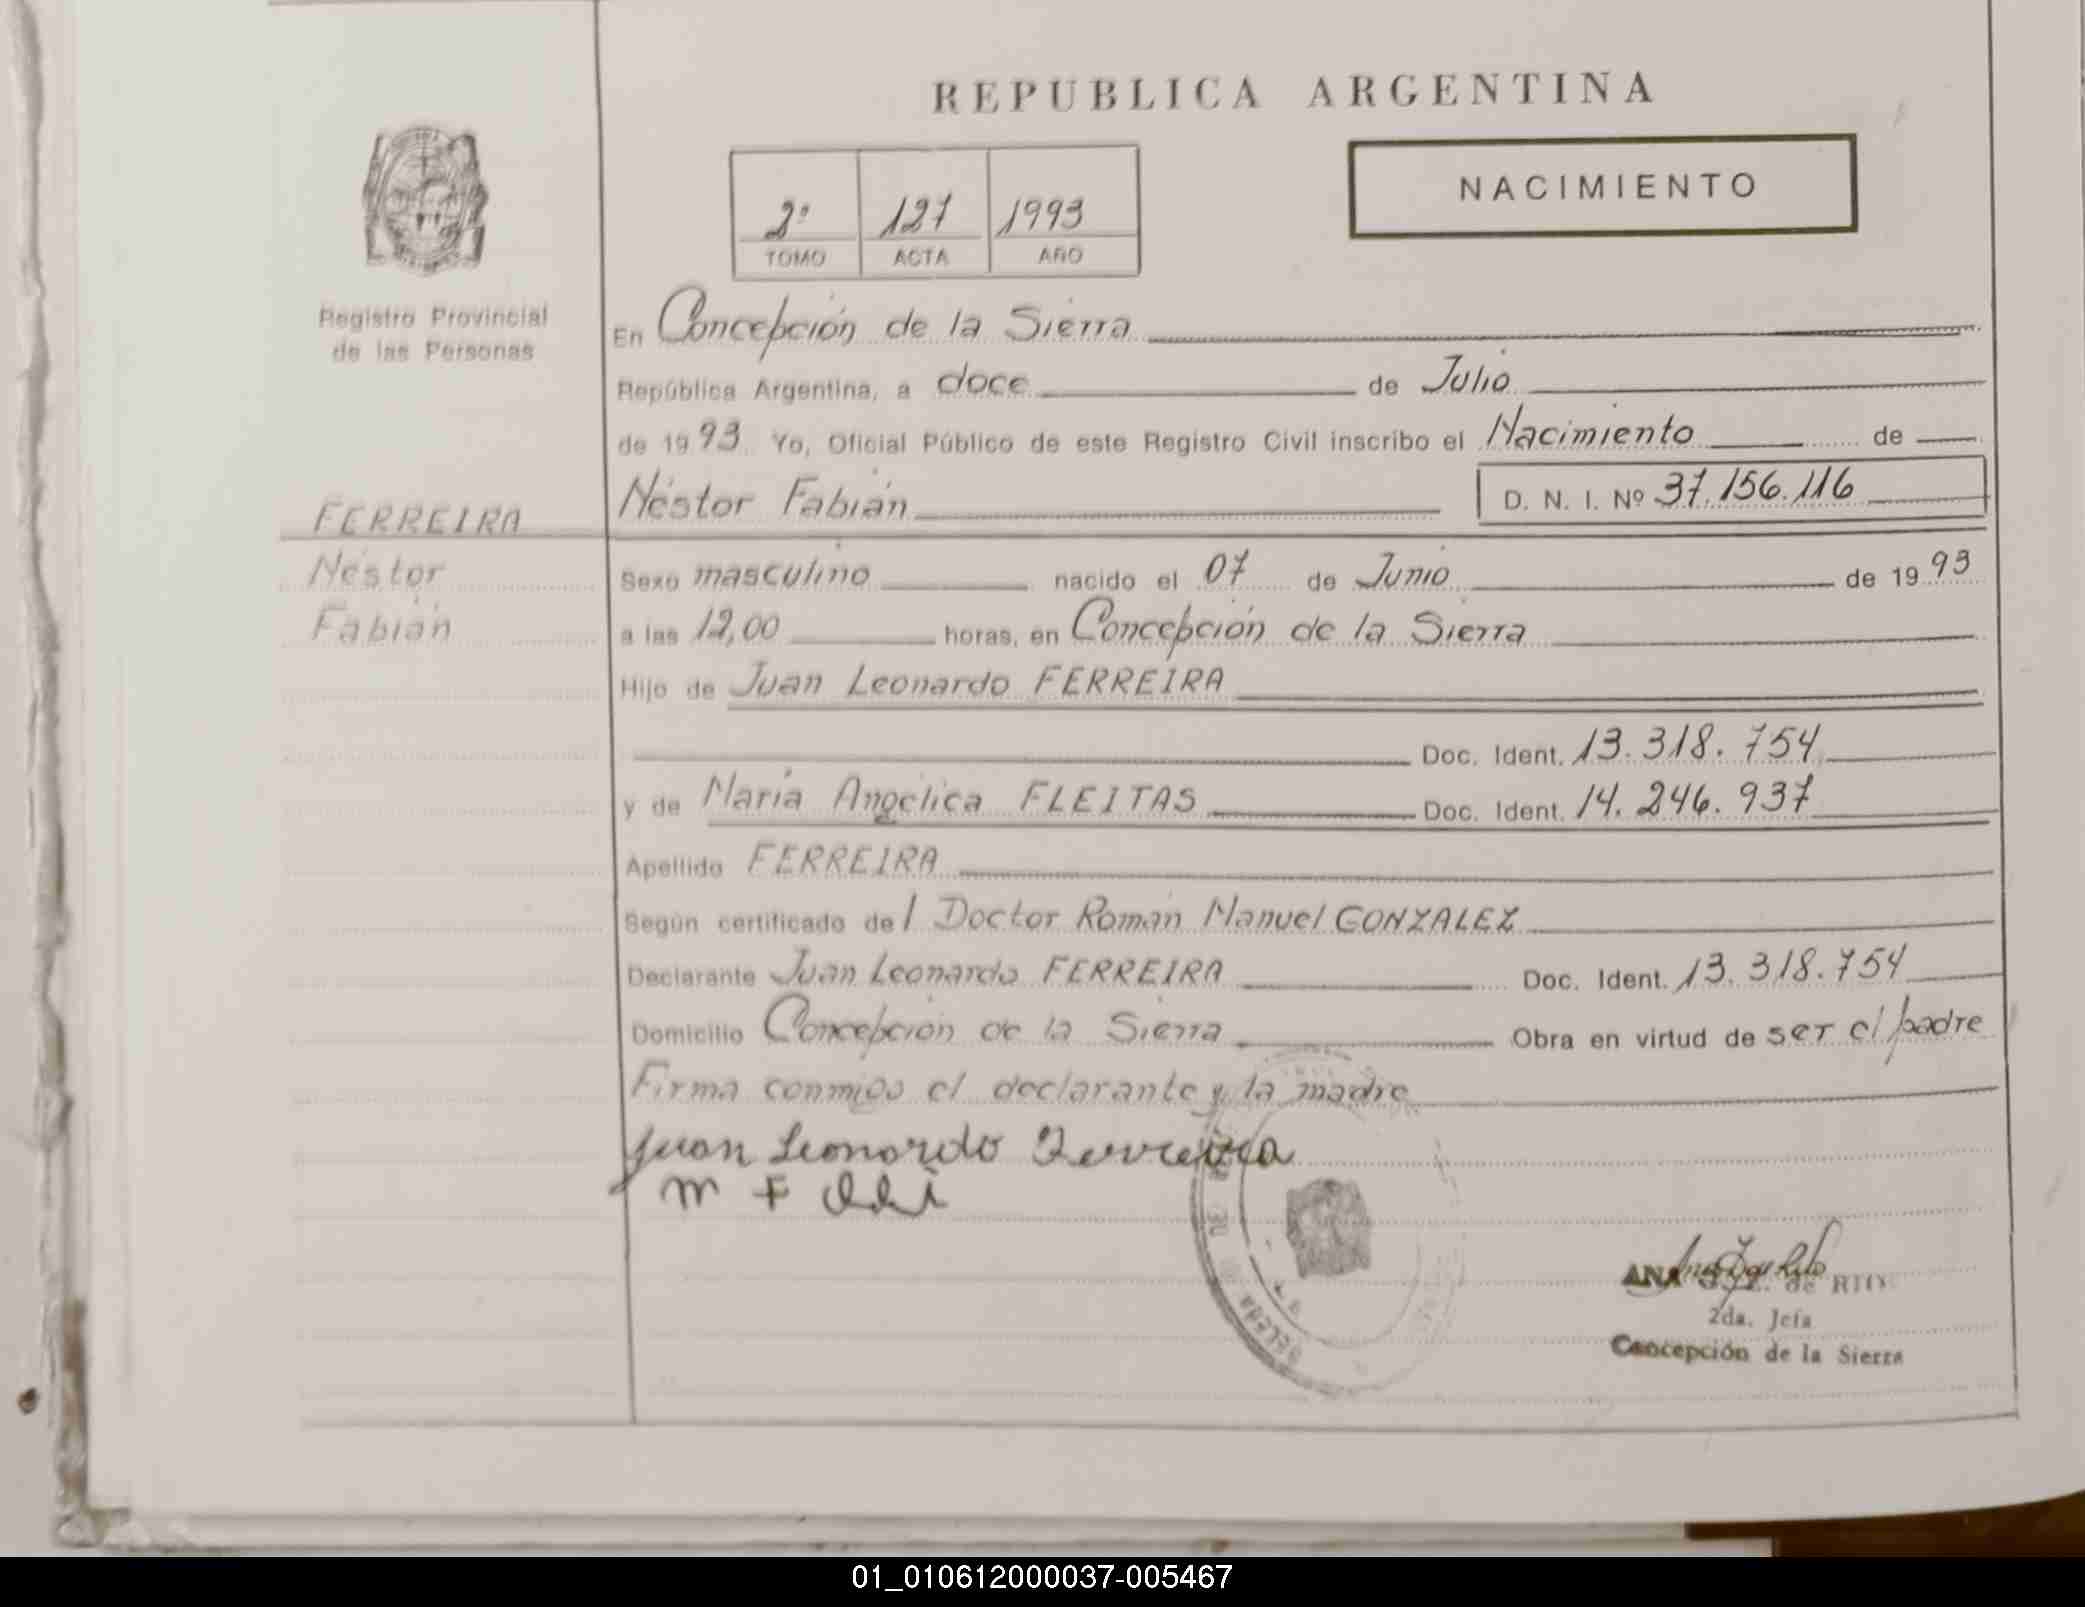 REPUBLICA ARGENTINA
NACIMIENTO
2º 127 1993
TOMO ACTA AÑO
Registro Provincial
de las Personas
En Concepción de la Sierra
República Argentina, a doce de Julio
de 1993 Yo, Oficial Público de este Registro Civil inscribo el Nacimiento de
Néstor Fabián D. N. I. Nº 37.156.116
FERREIRA
Néstor
Fabián
Sexo masculino nacido el 07 de Junio de 1993
a las 12,00 horas, en Concepción de la Sierra
Hijo de Juan Leonardo FERREIRA
Doc. Ident. 13.318.754
y de María Angélica FLEITAS Doc. Ident. 14.246.937
Apellido FERREIRA
Según certificado del Doctor Román Manuel GONZALEZ
Declarante Juan Leonardo FERREIRA Doc. Ident. 13.318.754
Domicilio Concepción de la Sierra Obra en virtud de ser el padre
Firma conmigo el declarante y la madre
Juan Leonardo Ferreira
ANA de RIOS
2da. Jefa
Concepción de la Sierra
01_010612000037-005467